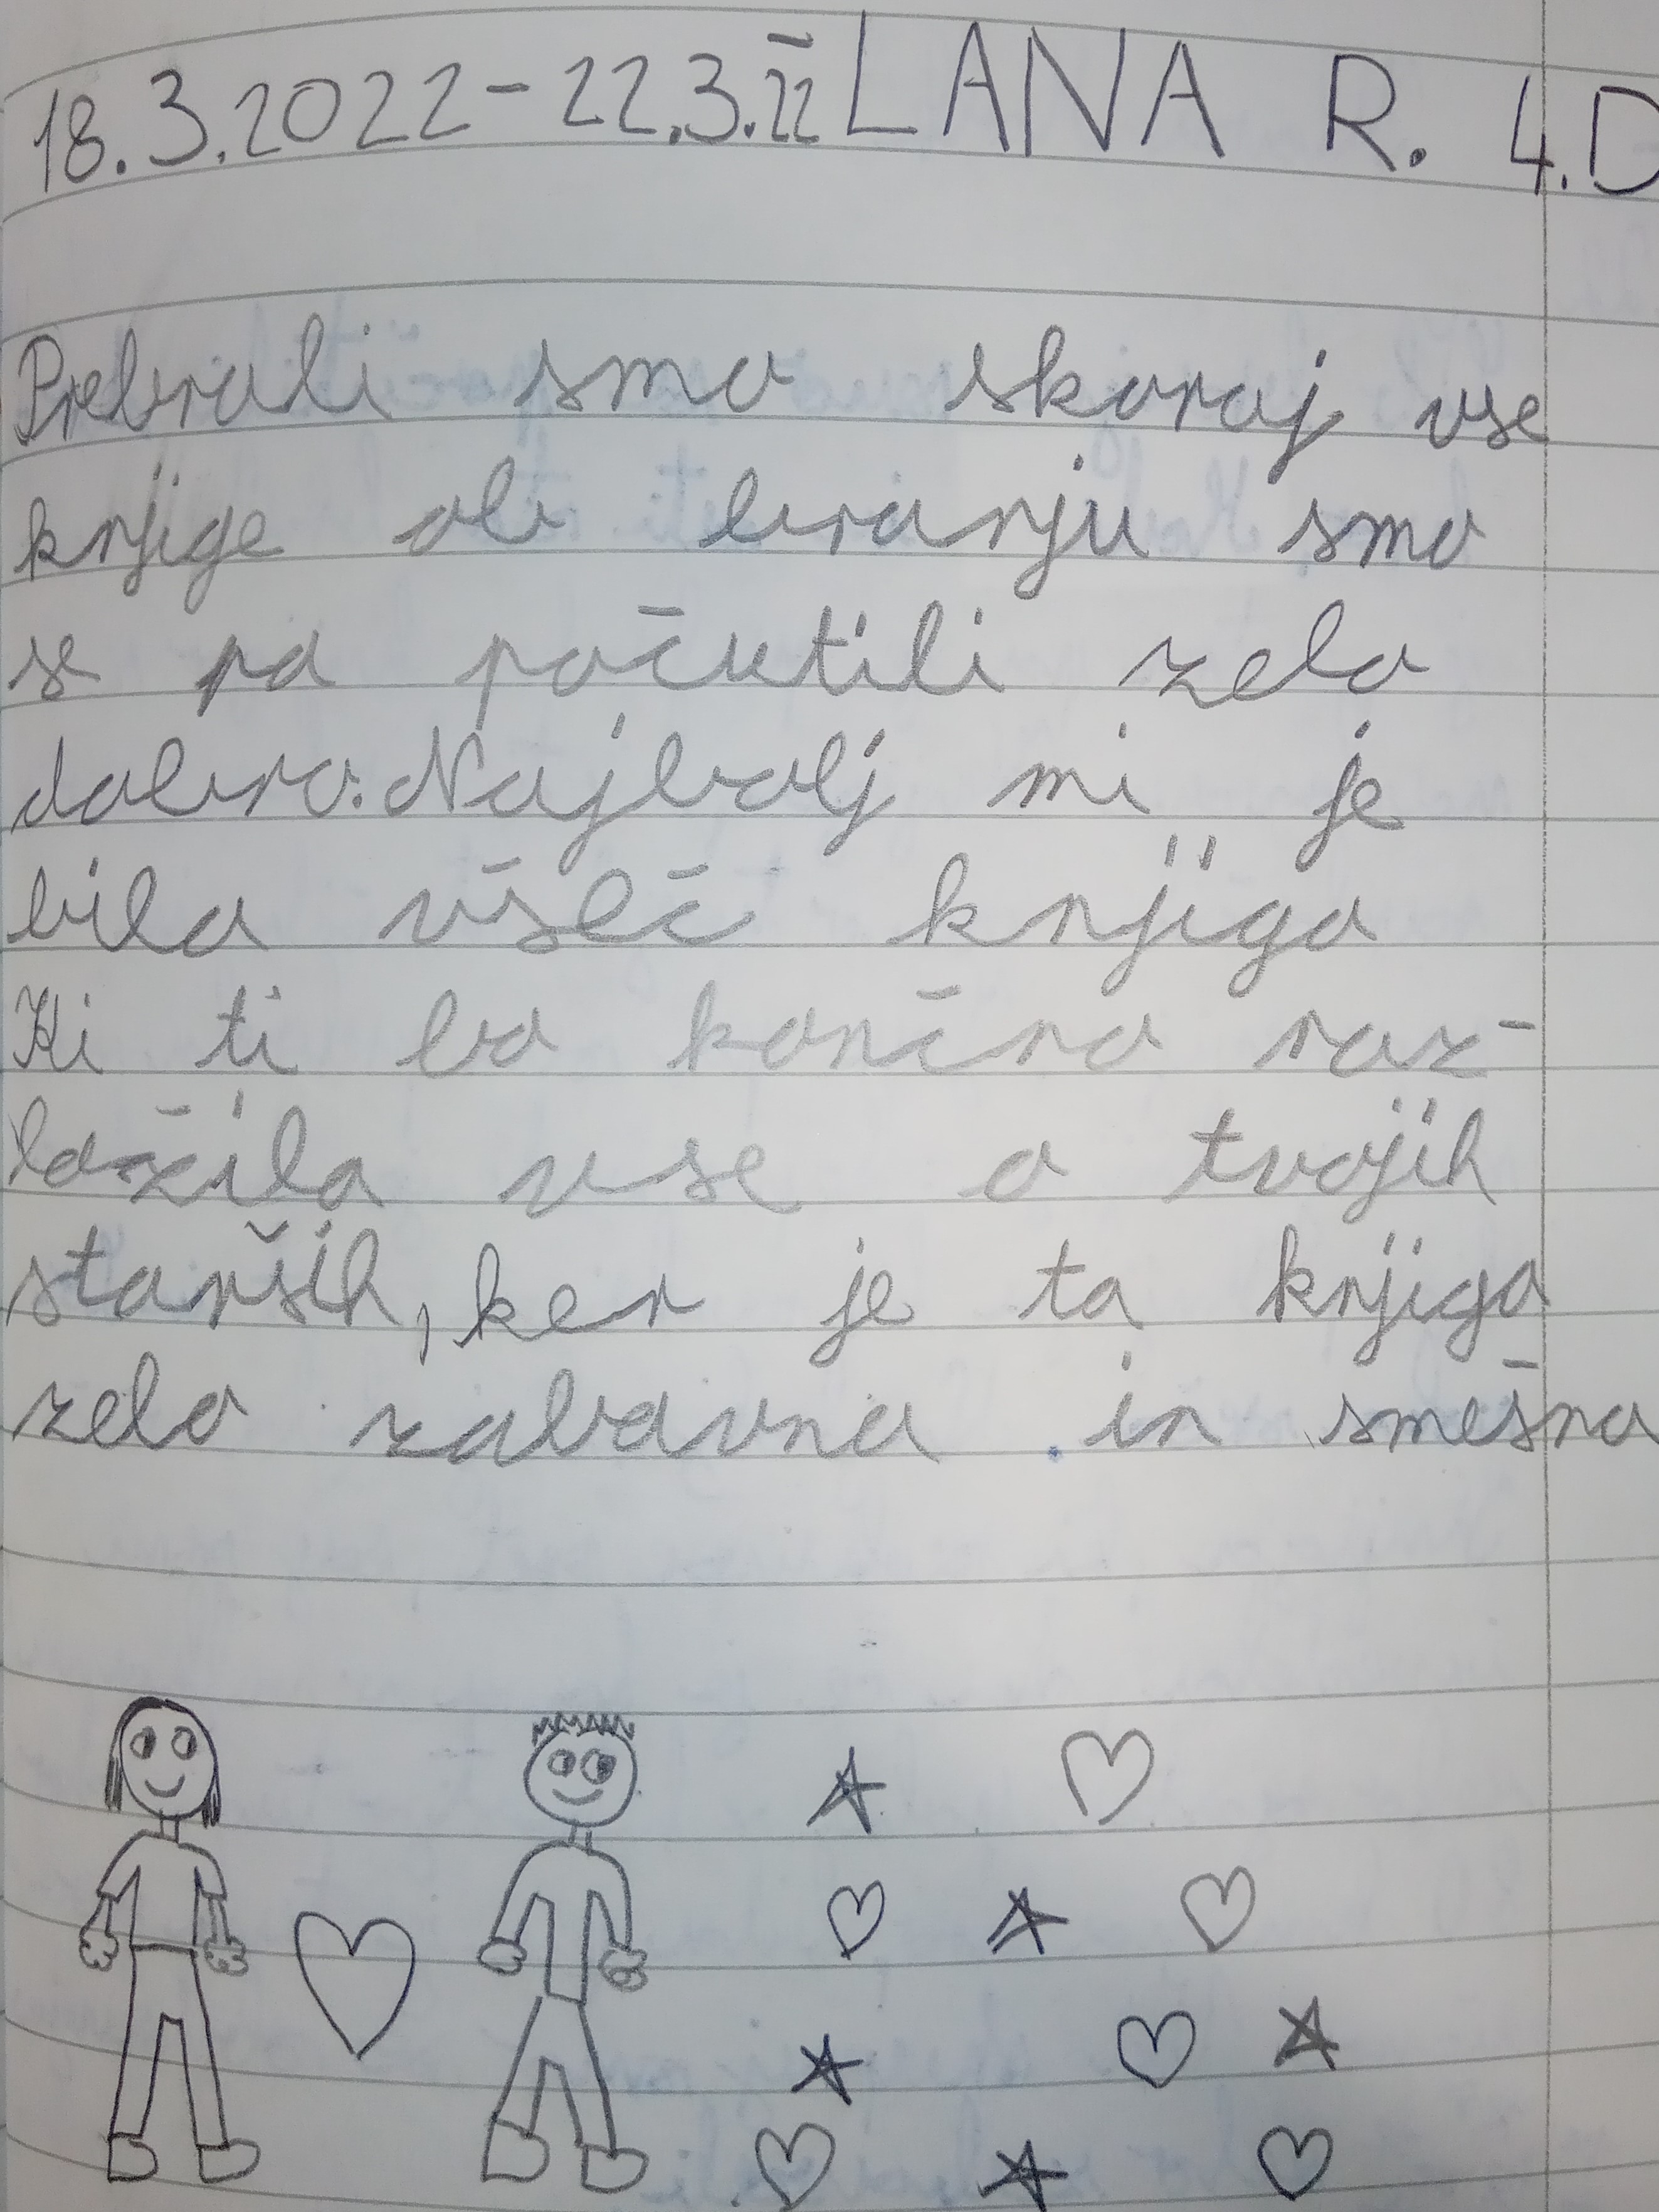 18.3.2022-22.3.22 LANA R. 4.D
Prebrali smo skoraj vse
knjige ob branju smo
se pa počutili zelo
dobro. Najbolj mi je
bila všeč knjiga
Ki ti bo končno raz-
ložila vse o tvojih
starših, ker je ta knjiga
zelo zabavna in smešna